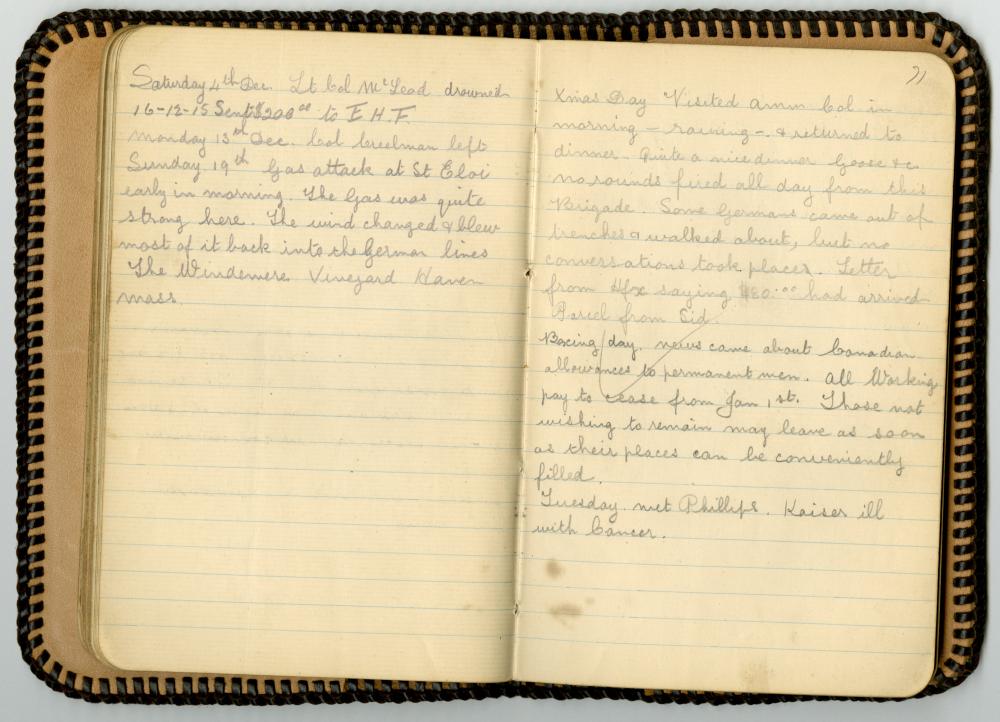 Saturday 4th Dec. Lt Col McLeod drowned
16-12-15 Sent $200 00 to E. H. F.
Monday 13th Dec. Col Creelman left
Sunday 19th Gas attack at St Eloi
early in morning. The Gas was quite
strong here. The wind changed & blew
most of it back into the German lines
The Windemere. Vineyard Haven
Mass.
21
Xmas Day Visited Amm Col in
morning - raining - & returned to
dinner. Quite a nice dinner Goose &c
no rounds fired all day from this
Brigade. Some Germans came out of
trenches & walked about, but no
conversations took places. Letter
from Hfx saying $80.00 had arrived
Parcel from Sid.
Boxing day. news came about Canadian
allowances to permanent men. All Working
pay to cease from Jan 1st. Those not
wishing to remain may leave as soon
as their places can be conveniently
filled.
Tuesday. met Phillips. Kaiser ill
with Cancer.